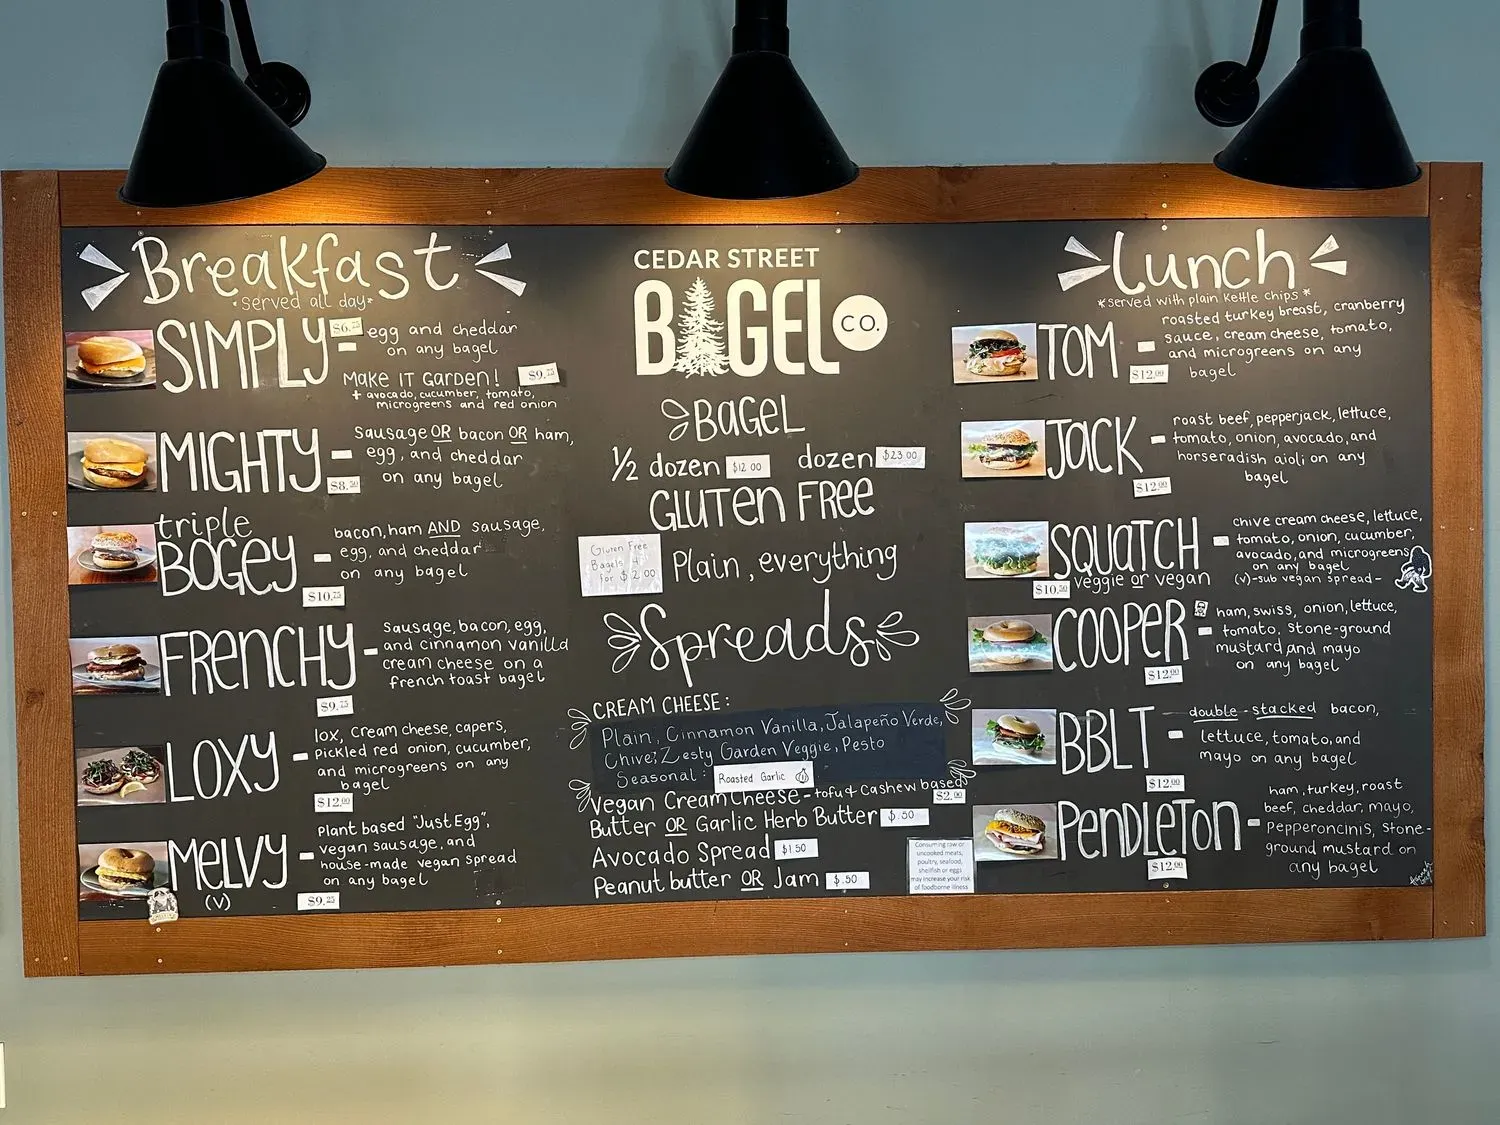 Breakfast
*served all day*
SIMPLY - $6.75 egg and cheddar
on any bagel
Make IT Garden! $9.75
+ avocado, cucumber, tomato,
microgreens and red onion
MIGHTY - $8.50 Sausage OR bacon OR ham,
egg, and cheddar
on any bagel
triple
BOGEY - $10.75 bacon, ham AND sausage,
egg, and cheddar
on any bagel
FRENCHY - $9.75 Sausage, bacon, egg,
and cinnamon vanilla
cream cheese on a
french toast bagel
LOXY - $12.00 lox, Cream cheese, capers,
Pickled red onion, cucumber,
and microgreens on any
bagel
MELVY - Plant based "Just Egg",
vegan sausage, and
house-made vegan spread
on any bagel
(V) $9.25
CEDAR STREET
BAGEL CO.
BAGEL
1/2 dozen $12.00 dozen $23.00
GLUTEN FREE
Gluten Free
Bagels
for $2.00
Plain, everything
Spreads
CREAM CHEESE:
Plain, Cinnamon Vanilla, Jalapeño Verde,
Chive, Zesty Garden Veggie, Pesto
Seasonal: Roasted Garlic
Vegan Cream Cheese - tofu & Cashew based $2.00
Butter OR Garlic Herb Butter $.50
Avocado Spread $1.50
Peanut butter OR Jam $.50
Consuming raw or
uncooked meats,
poultry, seafood,
shellfish or eggs
may increase your risk
of foodborne illness
Lunch
*served with plain Kettle chips*
TOM - $12.00 roasted turkey breast, cranberry
sauce, cream cheese, tomato,
and microgreens on any
bagel
JACK - $12.00 roast beef, pepperjack, lettuce,
tomato, onion, avocado, and
horseradish aioli on any
bagel
SQUATCH - chive cream cheese, lettuce,
tomato, onion, cucumber,
avocado, and microgreens
on any bagel
$10.50 Veggie or vegan (v)-sub vegan spread-
COOPER - $12.00 ham, swiss, onion, lettuce,
tomato, Stone-ground
mustard and mayo
on any bagel
BBLT - $12.00 double-stacked bacon,
lettuce, tomato, and
mayo on any bagel
PENDLETON - $12.00 ham, turkey, roast
beef, cheddar, mayo,
Pepperoncinis, stone-
ground mustard on
any bagel